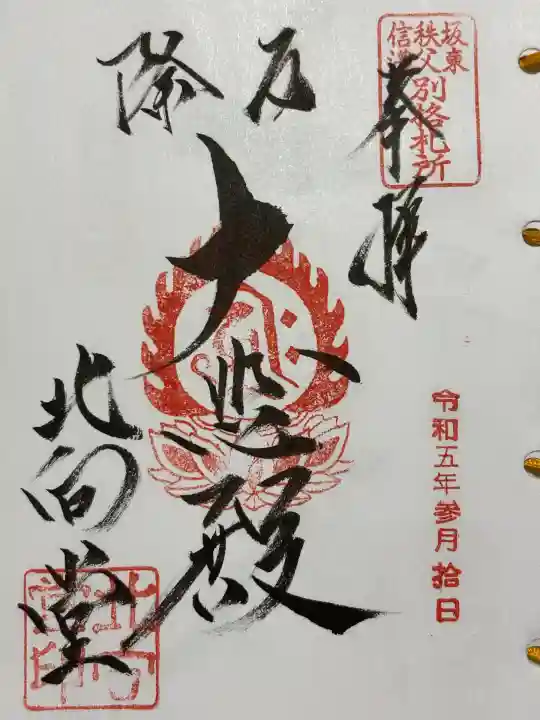 坂東
秩父
信濃
別格札所
奉拝
厄除
大悲殿
北向堂
令和五年参月拾日
北向
堂印